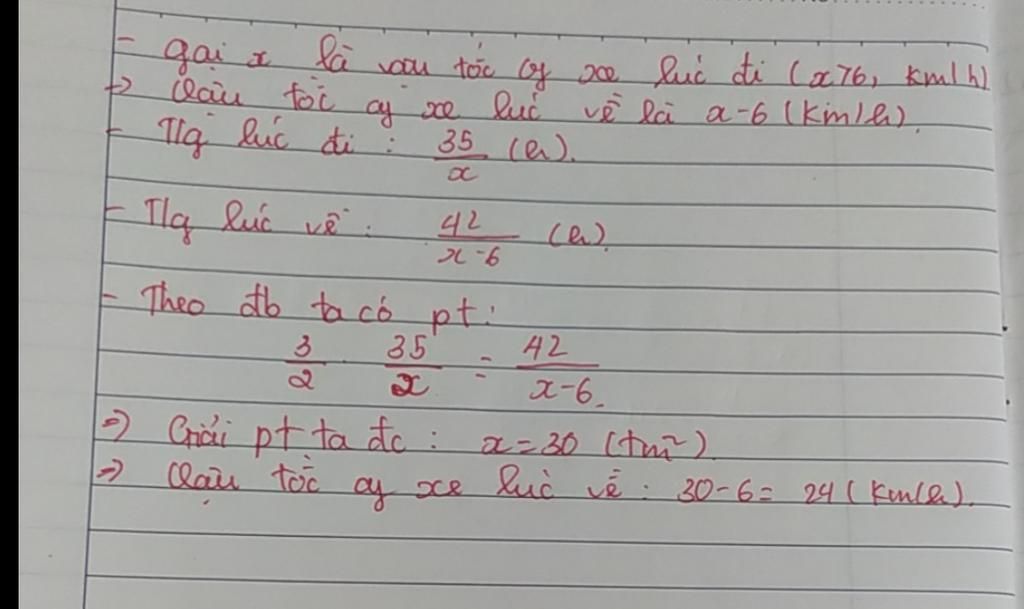 - Gọi x là vận tốc củ xe lúc đi (x>6, km/h)
=> Vận tốc củ xe lúc về là x-6 (km/h).
- Tg lúc đi : 35/x (h).
- Tg lúc về : 42/(x-6) (h).
- Theo đb ta có pt:
3/2 · 35/x = 42/(x-6).
=> Giải pt ta đc : x=30 (tm~)
=> Vận tốc củ xe lúc về : 30-6= 24 (km/h).